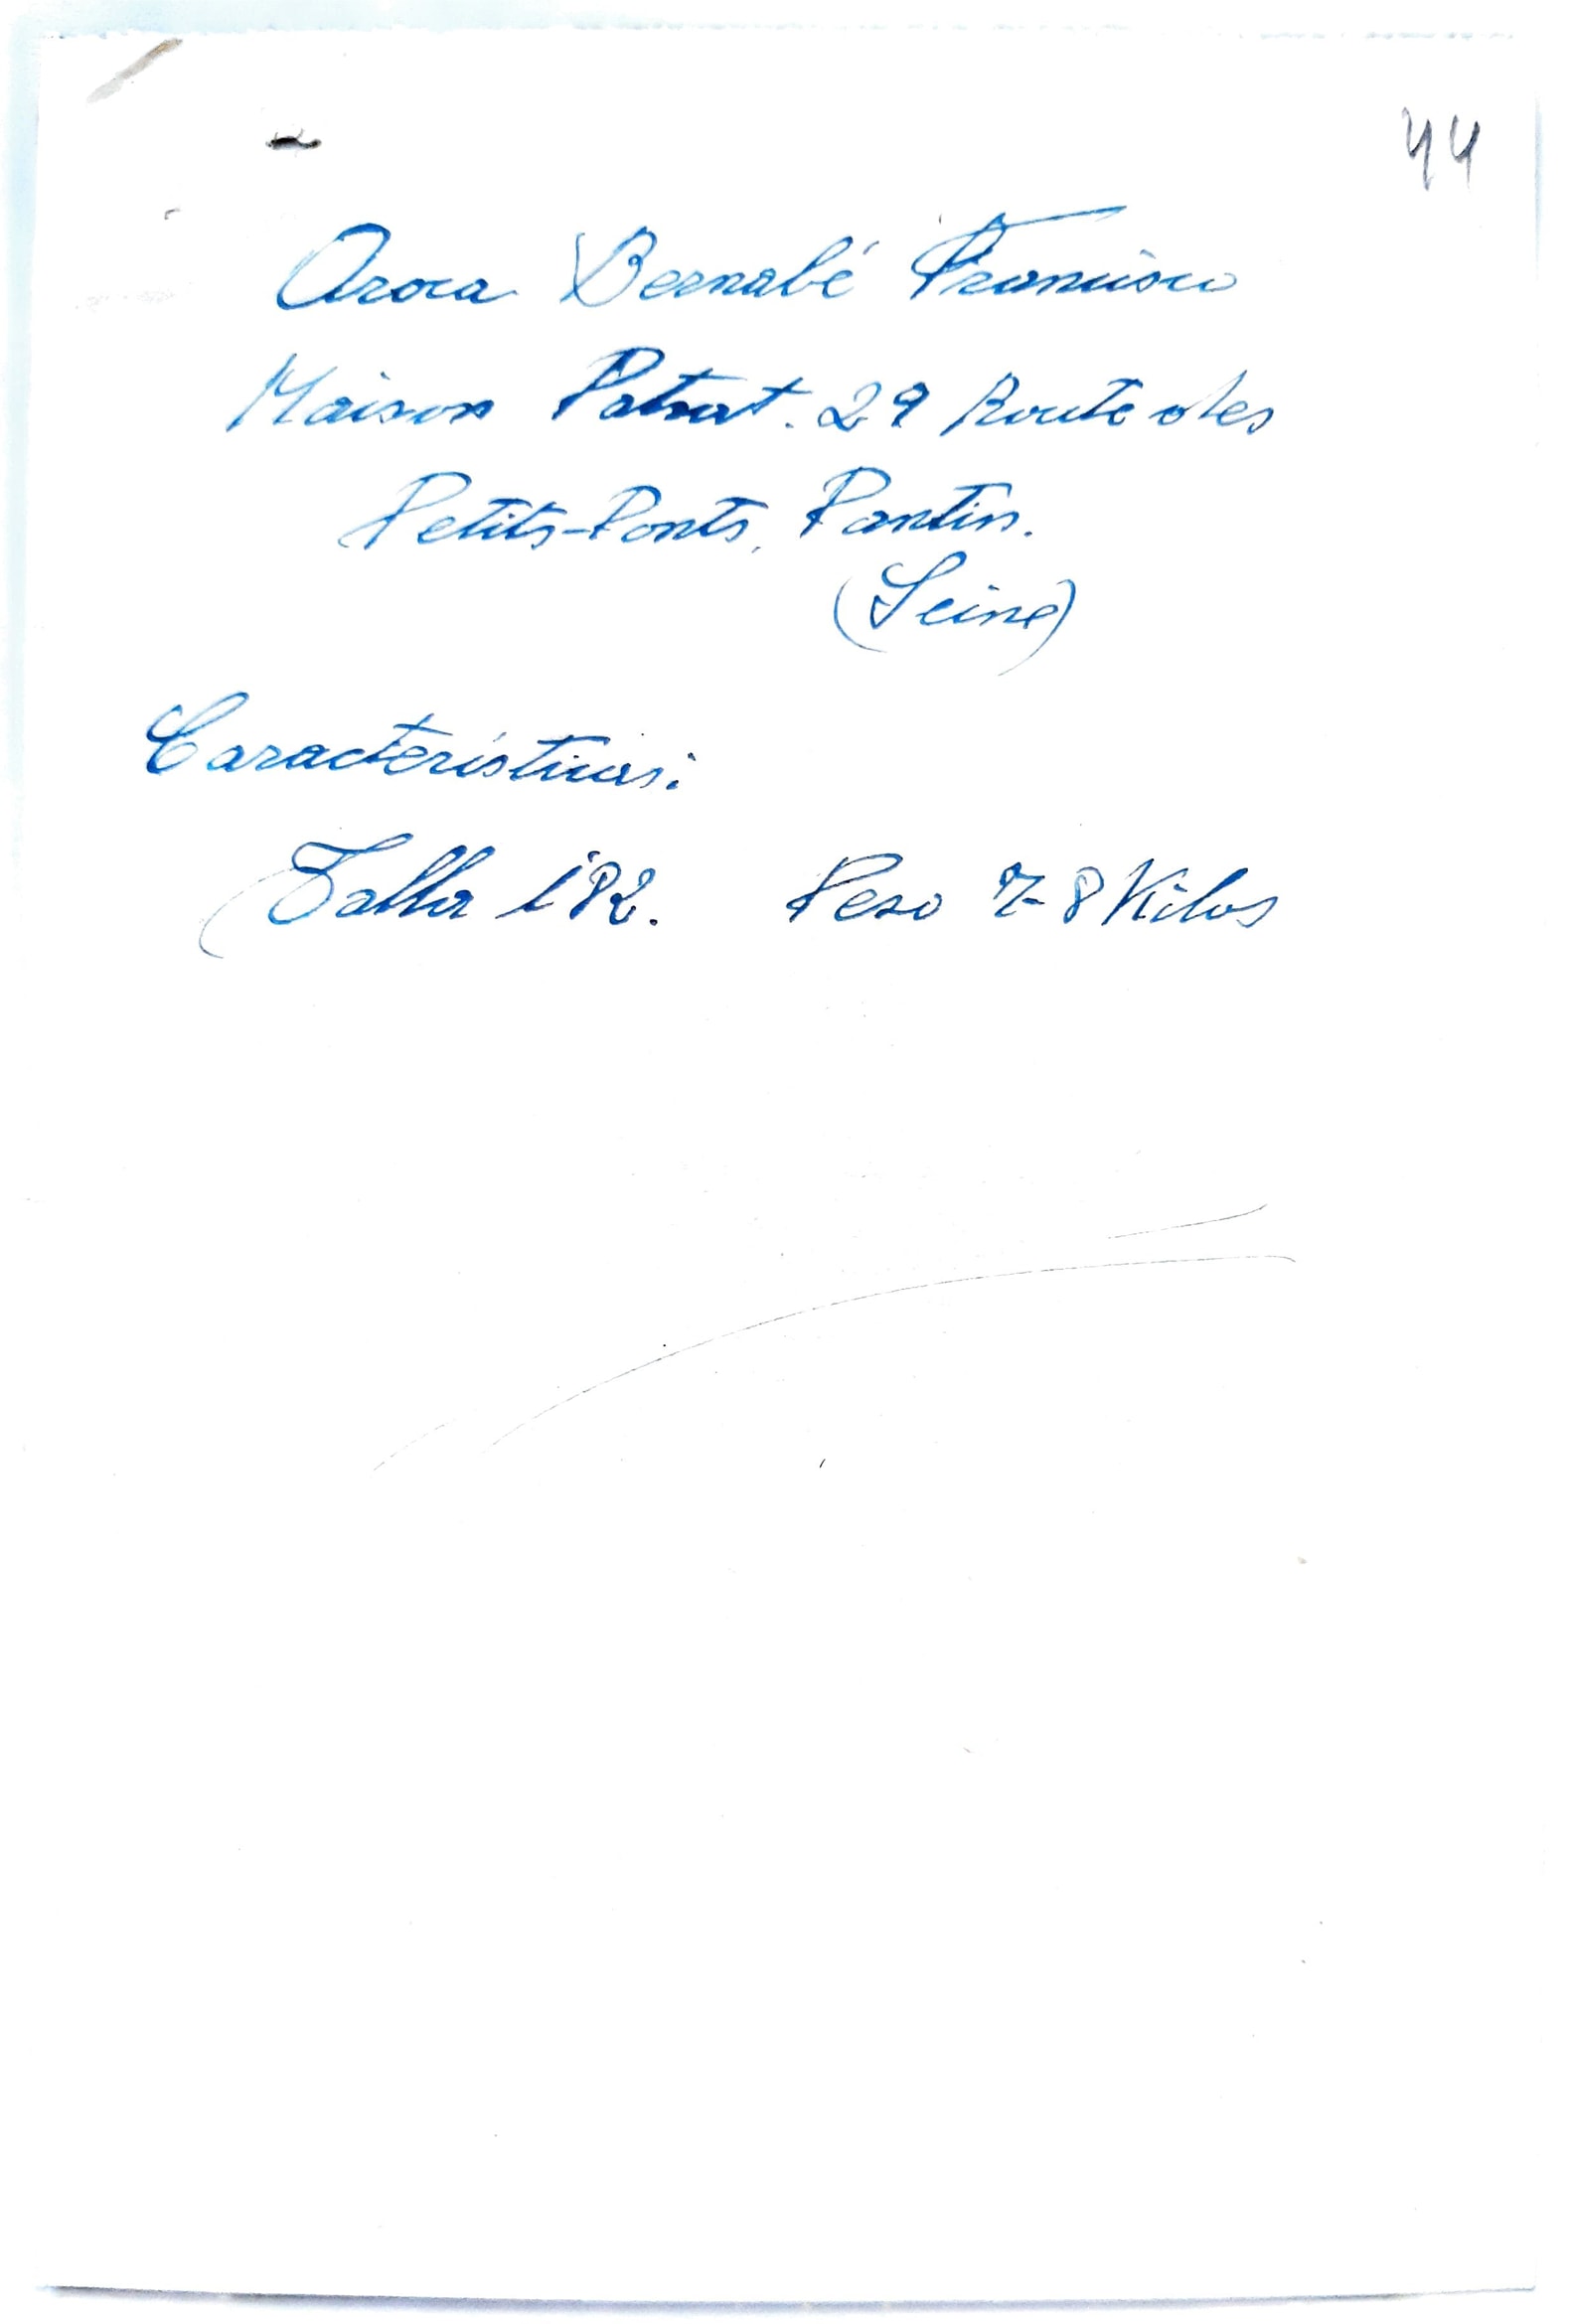 44
Aroca Bernabé Francisco
Maison Patrat. 29 Route des
Petits-Ponts, Pantin.
(Seine)
Características:
Talla 1'82. Peso 78 Kilos